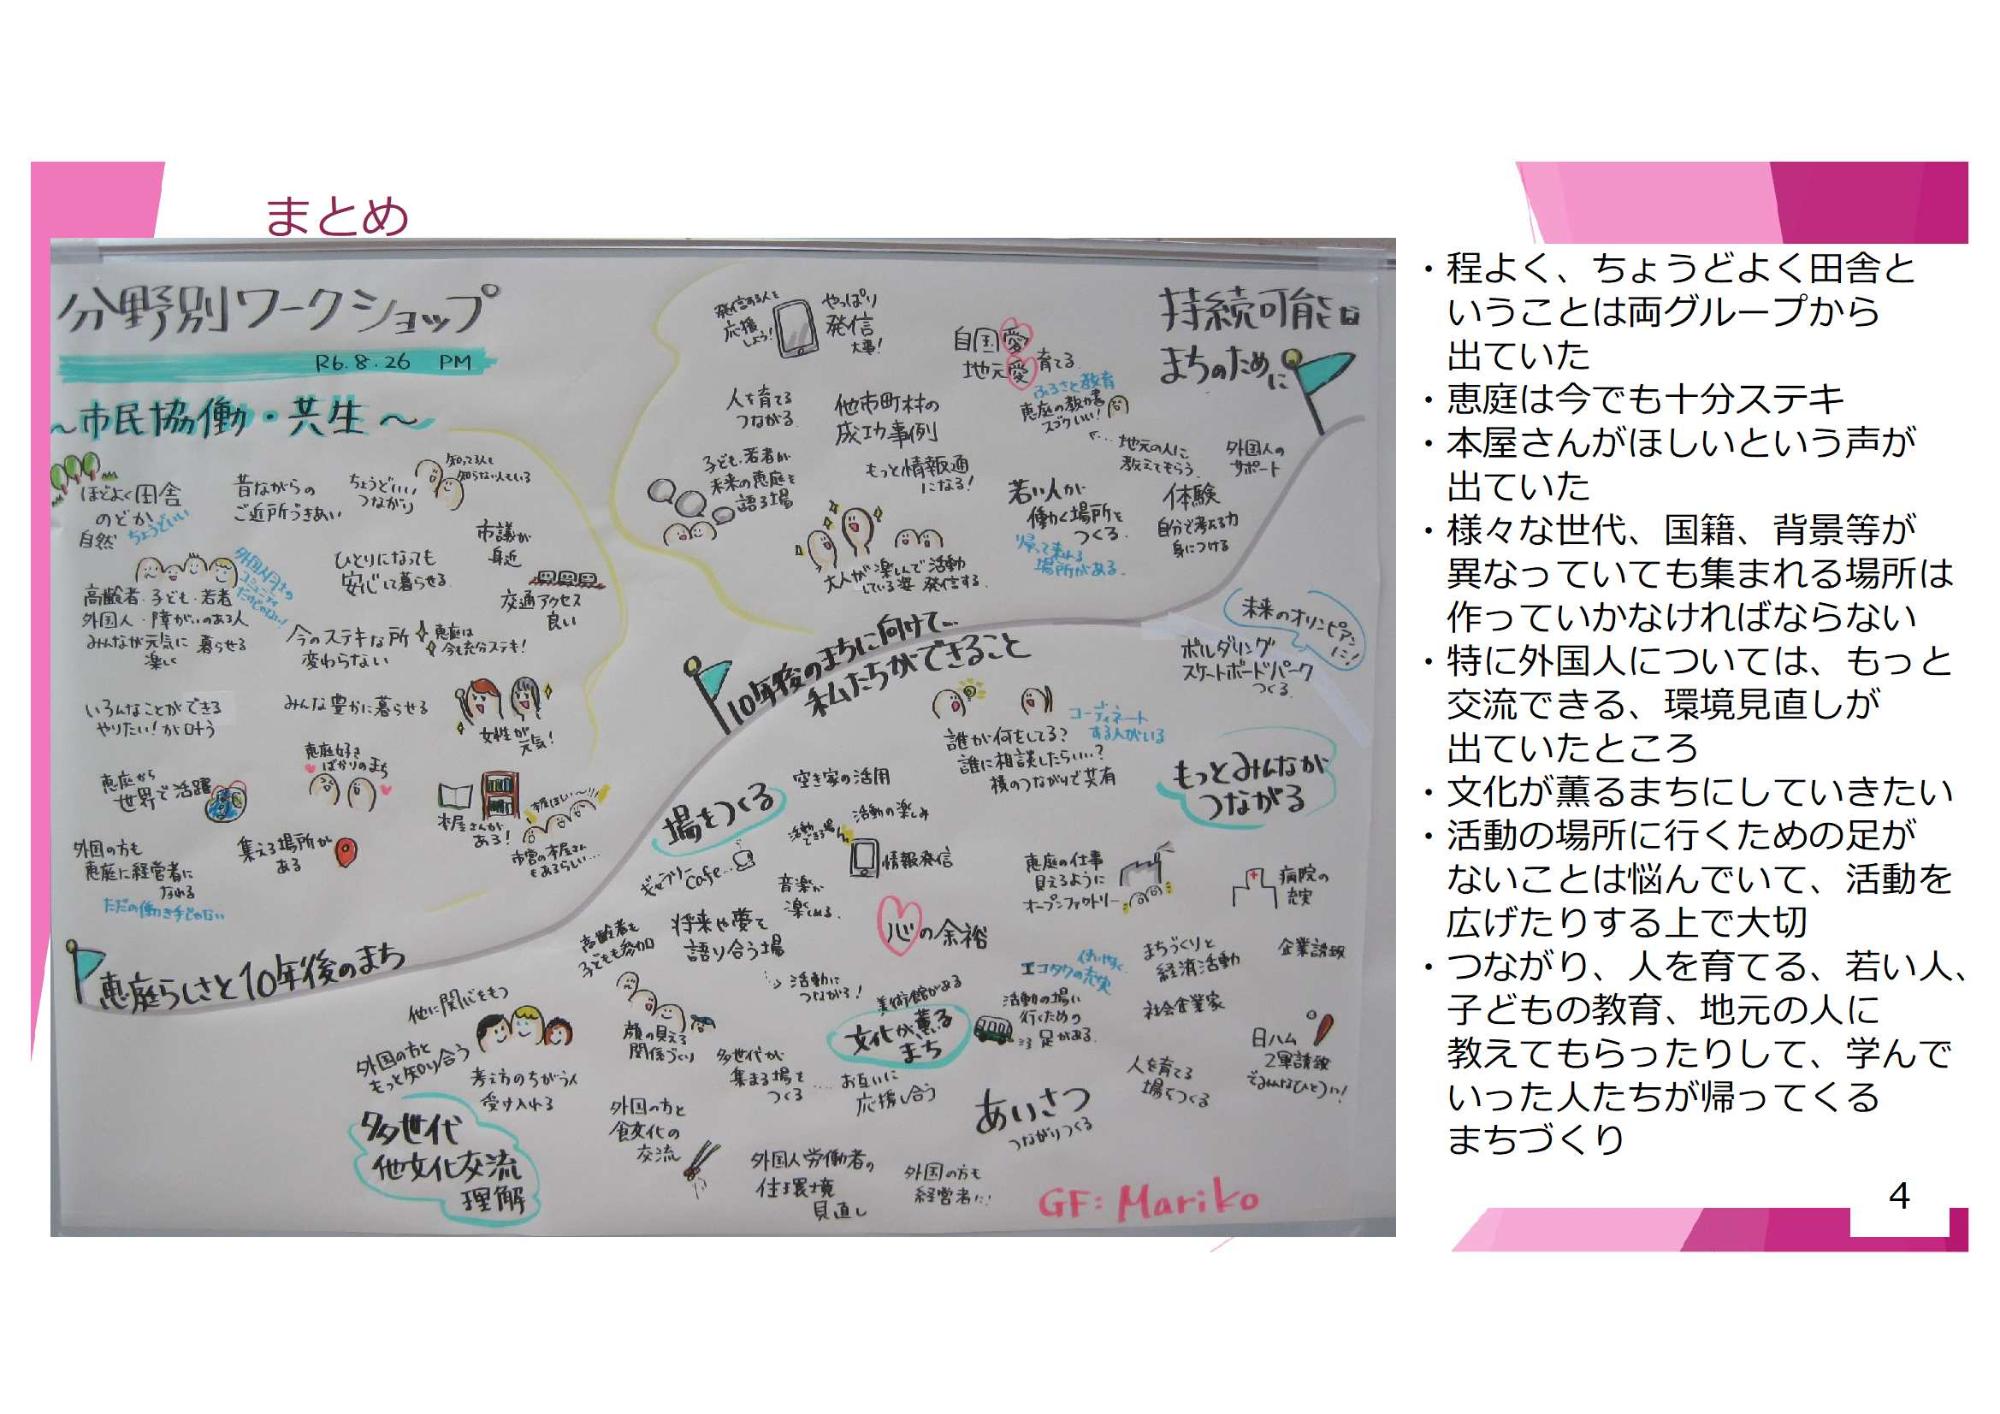 まとめ
分野別ワークショップ
R6.8.26 PM
～市民協働・共生～
ほどよく田舎
のどか
自然
ちょうどいい
昔ながらの
ご近所づきあい
ちょうどいい
つながり
知ってる人も
知らない人もいる
市議が
身近
ひとりになっても
安心して暮らせる
交通アクセス
良い
高齢者・子ども・若者
外国人・障がいのある人
みんなが元気に 暮らせる
楽しく
外国人同士の
コミュニティ
だけじゃない!
今のステキな所
変わらない
恵庭は
今も充分ステキ!
いろんなことができる
やりたい!が叶う
みんな豊かに暮らせる
女性が
元気!
恵庭から
世界で活躍
恵庭好き
ばかりのまち
本屋さんが
ある!
本屋ほしい〜!!
市営の本屋さん
もあるらしい…
外国の方も
恵庭に経営者に
なれる
ただの働き手じゃない
集える場所が
ある
恵庭らしさと10年後のまち
発信する人を
応援
しよう!
やっぱり
発信
大事!
自国愛
地元愛 育てる
ふるさと教育
恵庭の教科書
スゴくいい!
持続可能な
まちのために
人を育てる
つながる
他市町村の
成功事例
地元の人に
教えてもらう
外国人の
サポート
子ども・若者が
未来の恵庭を
語る場
もっと情報通
になる!
若い人が
働く場所を
つくる
帰って来れる
場所がある
体験
自分で考える力
身につける
大人が楽しんで活動
している姿 発信する
10年後のまちに向けて…
私たちができること
未来のオリンピアンに!
ボルダリング
スケートボードパーク
つくる
誰が何をしてる?
誰に相談したらいい…?
横のつながりで共有
コーディネート
する人がいる
もっとみんなが
つながる
場をつくる
空き家の活用
活動の楽しみ
活動
できる場
情報発信
ギャラリー
Cafe…
音楽が
楽しめる
恵庭の仕事
見えるように
オープンファクトリー
病院の
充実
心の余裕
高齢者も
子どもも参加
将来や夢を
語り合う場
活動に
つながる!
まちづくりと
経済活動
企業誘致
使いやすく
エコタクの充実
活動の場に
行くための
足がある
社会企業家
美術館がある
文化が薫る
まち
他に関心をもつ
外国の方と
もっと知り合う
考え方のちがう人
受け入れる
顔の見える
関係づくり
多世代が
集まる場を
つくる
お互いに
応援し合う
人を育てる
場をつくる
日ハム
2軍誘致
でみんなひとつに!
多世代
他文化交流
理解
外国の方と
食文化の
交流
あいさつ
つながりつくる
外国人労働者の
住環境
見直し
外国の方も
経営者に!
GF: Mariko
・程よく、ちょうどよく田舎と
いうことは両グループから
出ていた
・恵庭は今でも十分ステキ
・本屋さんがほしいという声が
出ていた
・様々な世代、国籍、背景等が
異なっていても集まれる場所は
作っていかなければならない
・特に外国人については、もっと
交流できる、環境見直しが
出ていたところ
・文化が薫るまちにしていきたい
・活動の場所に行くための足が
ないことは悩んでいて、活動を
広げたりする上で大切
・つながり、人を育てる、若い人、
子どもの教育、地元の人に
教えてもらったりして、学んで
いった人たちが帰ってくる
まちづくり
4